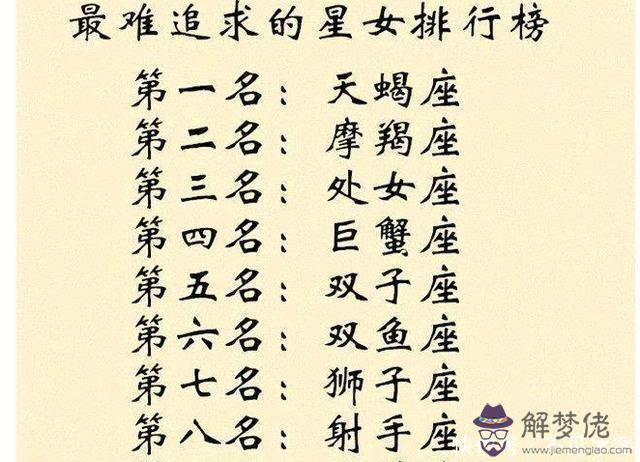 最难追求的星女排行榜
第一名：天蝎座
第二名：摩羯座
第三名：处女座
第四名：巨蟹座
第五名：双子座
第六名：双鱼座
第七名：狮子座
第八名：射手座
解梦佬
www.jiemenglao.com